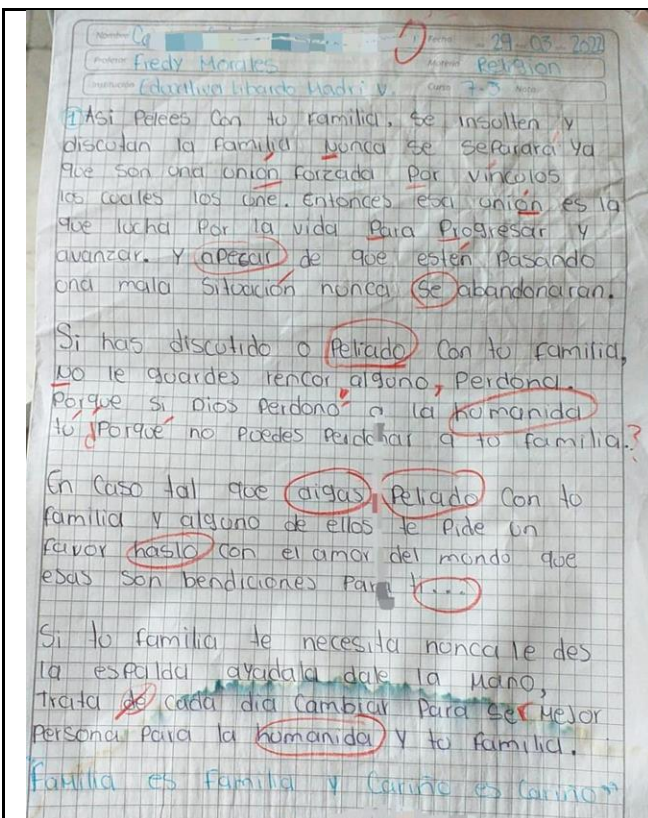 Nombre Ca Fecha - 29-03-2022
Profesor Fredy Morales Materia Religion
Institución Educativa Libardo Madri V. Curso 7-3 Nota
1 Asi Pelees con tu familia, se insulten y
discutan la familia Nunca se separará ya
que son una unión forzada por vinculos
los cuales los une. Entonces esa unión es la
que lucha Por la vida Para Progresar y
avanzar. Y apesar de que estén Pasando
una mala situación nunca se abandonaran.
Si has discutido o Peliado Con tu familia,
No le guardes rencor alguno, Perdona.
Porque si Dios Perdonó a la humanida
tú ¿Porqué no puedes perdonar a tu familia?
En caso tal que aigas Peliado Con tu
familia y alguno de ellos te Pide un
favor haslo con el amor del mundo que
esas son bendiciones Para ti...
Si tu familia te necesita nunca le des
la espalda ayudala dale la Mano,
trata de cada dia Cambiar Para ser Mejor
Persona Para la humanida y tu familia.
Familia es familia y Cariño es Cariño"